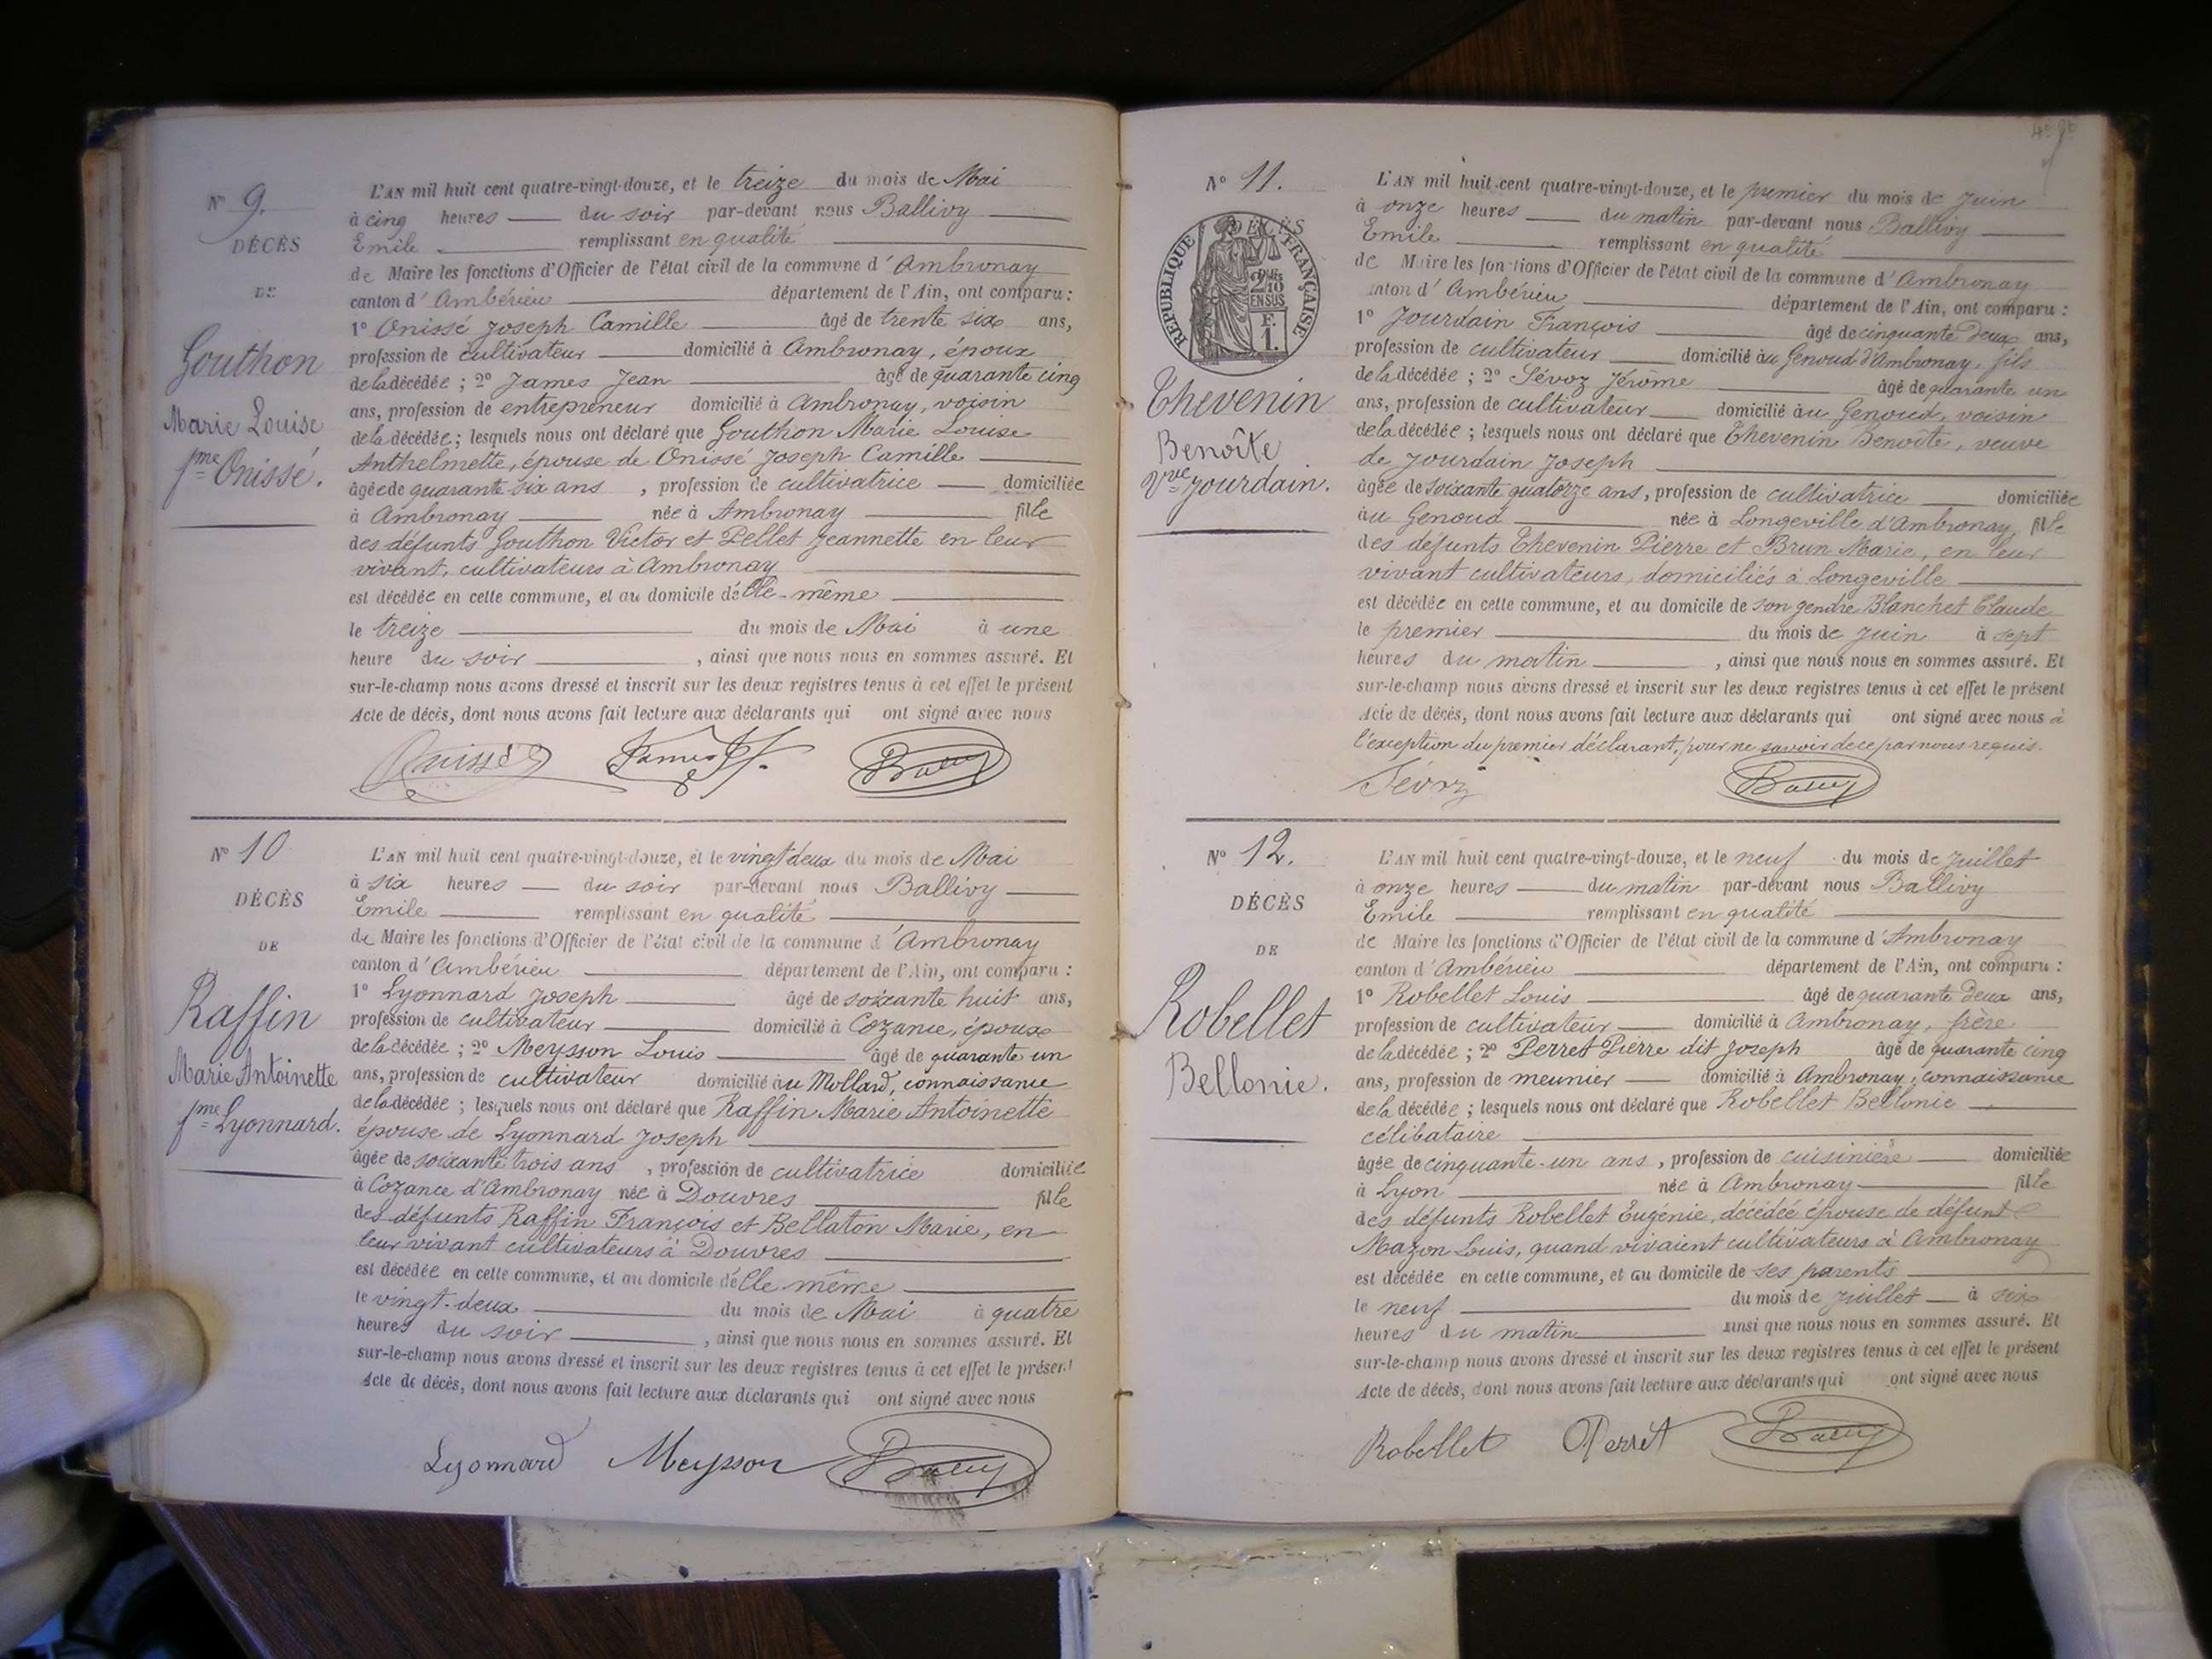 N° 9.
DÉCÈS
DE
Gouthon
Marie Louise
fme Onissé.
L'AN mil huit cent quatre-vingt-douze, et le treize du mois de Mai
à cinq heures du soir par-devant nous Ballivy
Emile remplissant en qualité
de Maire les fonctions d'Officier de l'état civil de la commune d'Ambronay
canton d'Ambérieu département de l'Ain, ont comparu :
1° Onissé Joseph Camille âgé de trente six ans,
profession de cultivateur domicilié à Ambronay, époux
de la décédée ; 2° James Jean âgé de quarante cinq
ans, profession de entrepreneur domicilié à Ambronay, voisin
de la décédée ; lesquels nous ont déclaré que Gouthon Marie Louise
Anthelmette, épouse de Onissé Joseph Camille
âgée de quarante-six ans, profession de cultivatrice domiciliée
à Ambronay née à Ambronay fille
des défunts Gouthon Victor et Pellet Jeannette en leur
vivant, cultivateurs à Ambronay
est décédée en cette commune, et au domicile d'elle-même
le treize du mois de Mai à une
heure du soir, ainsi que nous nous en sommes assuré. Et
sur-le-champ nous avons dressé et inscrit sur les deux registres tenus à cet effet le présent
Acte de décès, dont nous avons fait lecture aux déclarants qui ont signé avec nous
Onissé James
N° 10
DÉCÈS
DE
Raffin
Marie Antoinette
fme Lyonnard.
L'AN mil huit cent quatre-vingt-douze, et le vingt deux du mois de Mai
à six heures du soir par-devant nous Ballivy
Emile remplissant en qualité
de Maire les fonctions d'Officier de l'état civil de la commune d'Ambronay
canton d'Ambérieu département de l'Ain, ont comparu :
1° Lyonnard Joseph âgé de soixante huit ans,
profession de cultivateur domicilié à Cozance, époux
de la décédée ; 2° Meysson Louis âgé de quarante un
ans, profession de cultivateur domicilié au Mollard, connaissance
de la décédée ; lesquels nous ont déclaré que Raffin Marie Antoinette
épouse de Lyonnard Joseph
âgée de soixante trois ans, profession de cultivatrice domiciliée
à Cozance d'Ambronay née à Douvres fille
des défunts Raffin François et Bellaton Marie, en
leur vivant cultivateurs à Douvres
est décédée en cette commune, et au domicile d'elle même
le vingt-deux du mois de Mai à quatre
heures du soir, ainsi que nous nous en sommes assuré. Et
sur-le-champ nous avons dressé et inscrit sur les deux registres tenus à cet effet le présent
Acte de décès, dont nous avons fait lecture aux déclarants qui ont signé avec nous
Lyonnard Meysson
N° 11.
DÉCÈS
RÉPUBLIQUE FRANÇAISE
2/10 EN SUS
F. 1.
Thevenin
Benoîte
Vve Jourdain.
L'AN mil huit-cent quatre-vingt-douze, et le premier du mois de Juin
à onze heures du matin par-devant nous Ballivy
Emile remplissant en qualité
de Maire les fonctions d'Officier de l'état civil de la commune d'Ambronay
canton d'Ambérieu département de l'Ain, ont comparu :
1° Jourdain François âgé de cinquante deux ans,
profession de cultivateur domicilié au Genoud d'Ambronay, fils
de la décédée ; 2° Sévoz Jérôme âgé de quarante un
ans, profession de cultivateur domicilié au Genoud, voisin
de la décédée ; lesquels nous ont déclaré que Thevenin Benoîte, veuve
de Jourdain Joseph
âgée de soixante quatorze ans, profession de cultivatrice domiciliée
au Genoud née à Longeville d'Ambronay, fille
des défunts Thevenin Pierre et Brun Marie, en leur
vivant cultivateurs, domiciliés à Longeville
est décédée en cette commune, et au domicile de son gendre Blanchet Claude
le premier du mois de Juin à sept
heures du matin, ainsi que nous nous en sommes assuré. Et
sur-le-champ nous avons dressé et inscrit sur les deux registres tenus à cet effet le présent
Acte de décès, dont nous avons fait lecture aux déclarants qui ont signé avec nous à
l'exception du premier déclarant, pour ne savoir de ce par nous requis.
Sévoz
N° 12.
DÉCÈS
DE
Robellet
Bellonie.
L'AN mil huit cent quatre-vingt-douze, et le neuf du mois de Juillet
à onze heures du matin par-devant nous Ballivy
Emile remplissant en qualité
de Maire les fonctions d'Officier de l'état civil de la commune d'Ambronay
canton d'Ambérieu département de l'Ain, ont comparu :
1° Robellet Louis âgé de quarante deux ans,
profession de cultivateur domicilié à Ambronay, frère
de la décédée ; 2° Perret Pierre dit Joseph âgé de quarante cinq
ans, profession de meunier domicilié à Ambronay, connaissance
de la décédée ; lesquels nous ont déclaré que Robellet Bellonie
célibataire
âgée de cinquante-un ans, profession de cuisinière domiciliée
à Lyon née à Ambronay fille
des défunts Robellet Eugénie, décédée épouse de défunt
Mazon Louis, quand vivaient cultivateurs à Ambronay
est décédée en cette commune, et au domicile de ses parents
le neuf du mois de Juillet à six
heures du matin ainsi que nous nous en sommes assuré. Et
sur-le-champ nous avons dressé et inscrit sur les deux registres tenus à cet effet le présent
Acte de décès, dont nous avons fait lecture aux déclarants qui ont signé avec nous
Robellet Perret